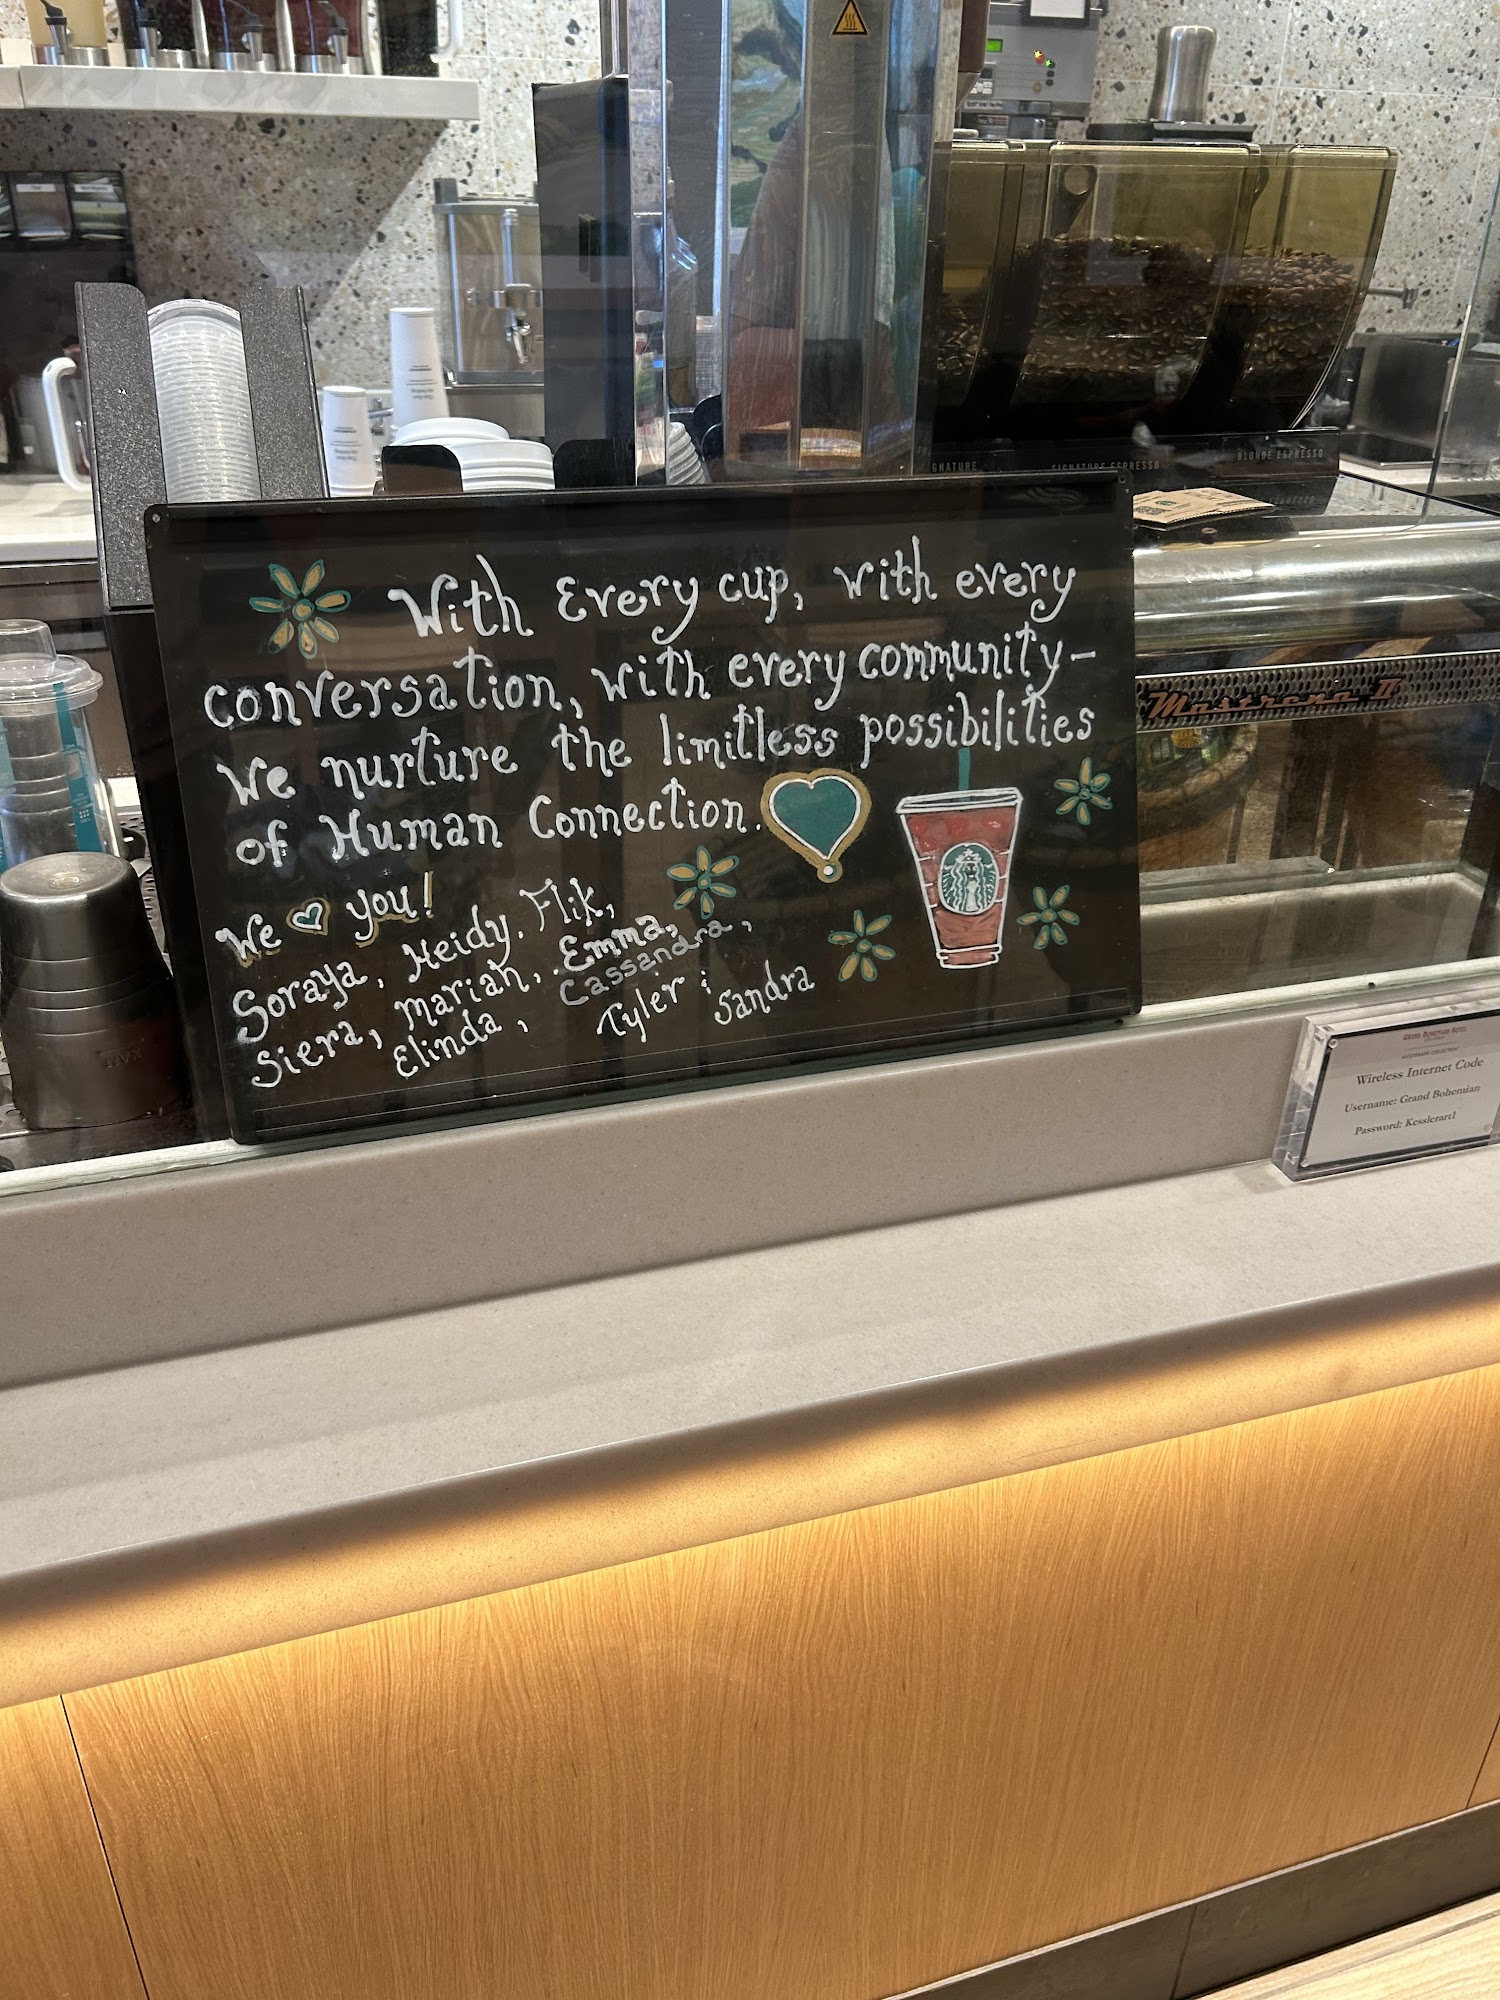 GNATURE
SIGNATURE ESPRESSO
BLONDE ESPRESSO
With Every cup, with every
conversation, with every community-
We nurture the limitless possibilities
of Human Connection.
We you!
Soraya, Heidy, Flik,
Siera, Mariah, Emma,
Elinda, Cassandra,
Tyler & Sandra
Mastrena II
GRAND BOHEMIAN HOTEL
AUTOGRAPH COLLECTION
Wireless Internet Code
Username: Grand Bohemian
Password: Kesslerart1